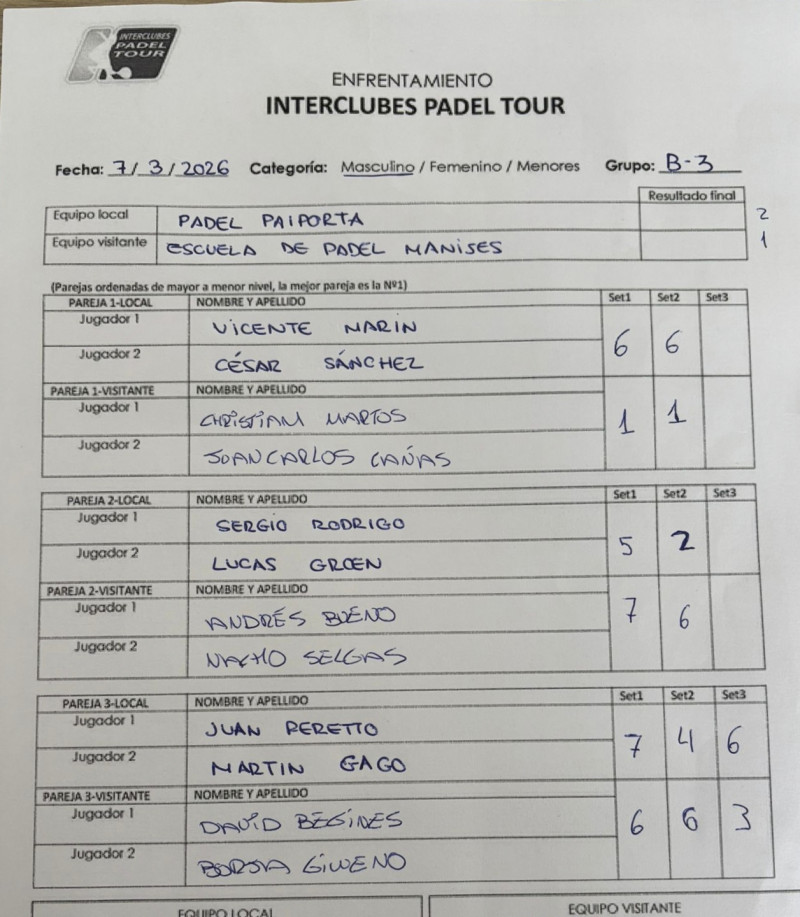 INTERCLUBES
PADEL
TOUR
ENFRENTAMIENTO
INTERCLUBES PADEL TOUR
Fecha: 7/3/2026 Categoría: Masculino / Femenino / Menores Grupo: B-3
Resultado final
Equipo local PADEL PAIPORTA 2
Equipo visitante ESCUELA DE PADEL MANISES 1
(Parejas ordenadas de mayor a menor nivel, la mejor pareja es la Nº1)
PAREJA 1-LOCAL NOMBRE Y APELLIDO Set1 Set2 Set3
Jugador 1 VICENTE MARIN
6 6
Jugador 2 CÉSAR SÁNCHEZ
PAREJA 1-VISITANTE NOMBRE Y APELLIDO
Jugador 1 CHRISTIAM MARTOS
1 1
Jugador 2 JOANCARLOS CAÑAS
PAREJA 2-LOCAL NOMBRE Y APELLIDO Set1 Set2 Set3
Jugador 1 SERGIO RODRIGO
5 2
Jugador 2 LUCAS GROEN
PAREJA 2-VISITANTE NOMBRE Y APELLIDO
Jugador 1 ANDRÉS BUENO
7 6
Jugador 2 NACHO SELGAS
PAREJA 3-LOCAL NOMBRE Y APELLIDO Set1 Set2 Set3
Jugador 1 JUAN PERETTO
7 4 6
Jugador 2 MARTIN GAGO
PAREJA 3-VISITANTE NOMBRE Y APELLIDO
Jugador 1 DAVID BEGINES
6 6 3
Jugador 2 BORJA GIMENO
EQUIPO LOCAL EQUIPO VISITANTE